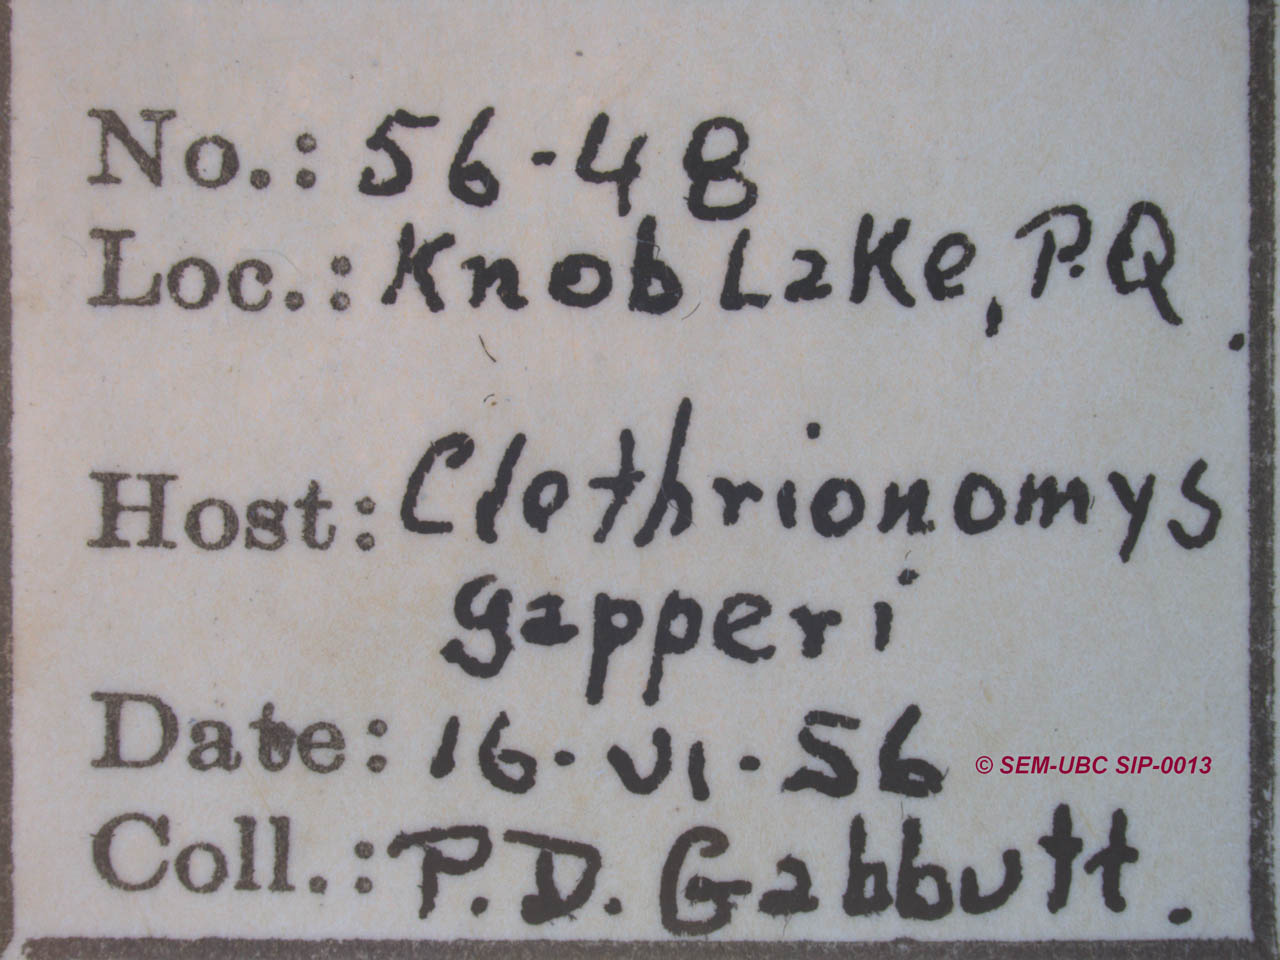 No.: 56-48
Loc.: Knob Lake, P.Q.
Host: Clethrionomys
gapperi
Date: 16-VI-56
© SEM-UBC SIP-0013
Coll.: P.D. Gabbutt.